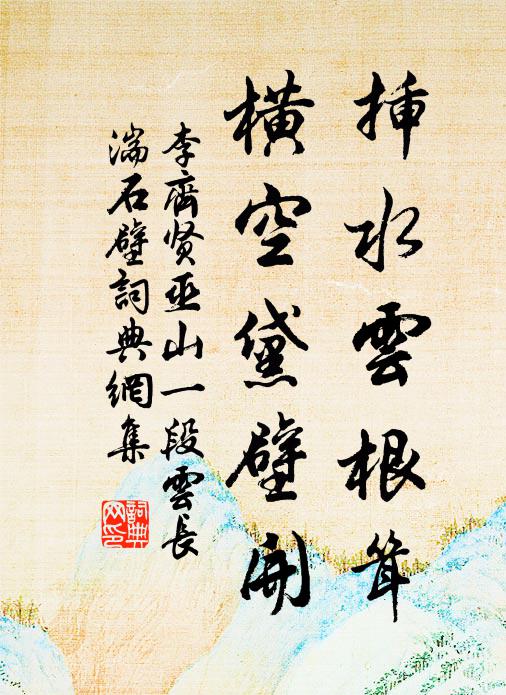 插水雲根耸
橫空黛壁開
李齊贤巫山一段雲長
湍石壁詞典網集
詞典
网印